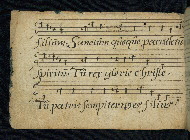 filium. Sanctum quoque paraclitū
Spiritū. Tu rex glorie christe.
Tu patris sempiternus es filius.